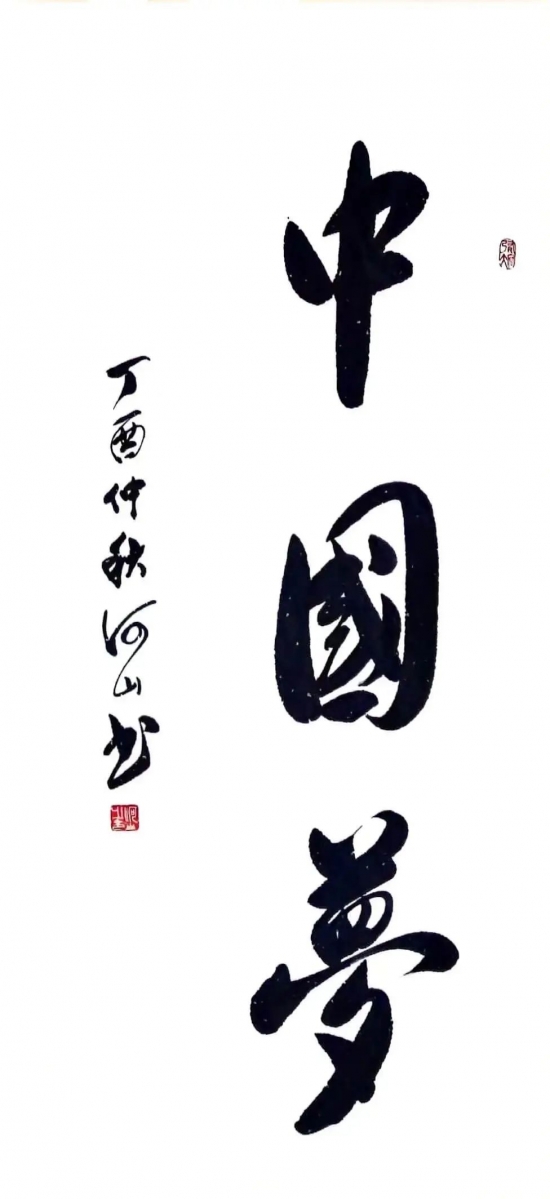 中國夢
丁酉仲秋河山书